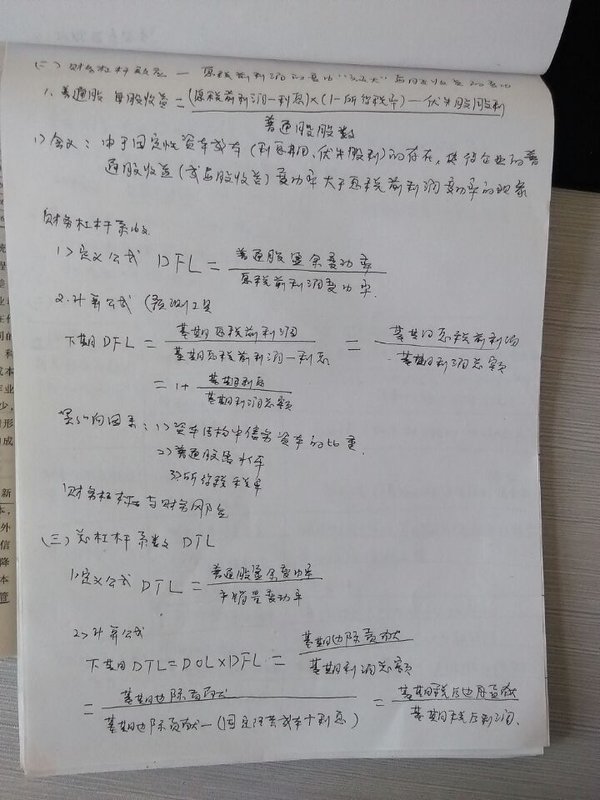 (二) 财务杠杆效应 — 息税前利润的变动"放大"每股收益的变动
1. 普通股每股收益 = (息税前利润-利息)×(1-所得税率)-优先股股利
普通股股数
1) 含义: 由于固定性资本成本 (利息费用、优先股利) 的存在, 使得企业的普
通股收益 (或每股收益) 变动率大于息税前利润变动率的现象
财务杠杆系数
1) 定义公式 DFL = 普通股盈余变动率
息税前利润变动率.
2. 计算公式 (预测工具
下期 DFL = 基期息税前利润 = 基期息税前利润
基期息税前利润-利息 基期利润总额
= 1+ 基期利息
基期利润总额
影响因素: 1) 资本结构中债务资本的比重.
2) 普通股盈 水平
3) 所得税税率
财务杠杆 与财务风险
(三) 总杠杆系数 DTL
1) 定义公式 DTL = 普通股盈余变动率
产销量变动率
2) 计算公式
下期 DTL = DOL×DFL = 基期边际贡献
基期利润总额
= 基期边际贡献 = 基期税后边际贡献
基期边际贡献-(固定经营成本+利息) 基期税后利润.